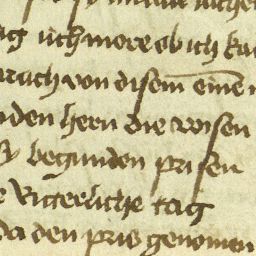 ag ichmore ob ich ka
rach von disem einē
nden hern die wisen
sy begunden prisen
e Ritterliche tag
da den pris genomen